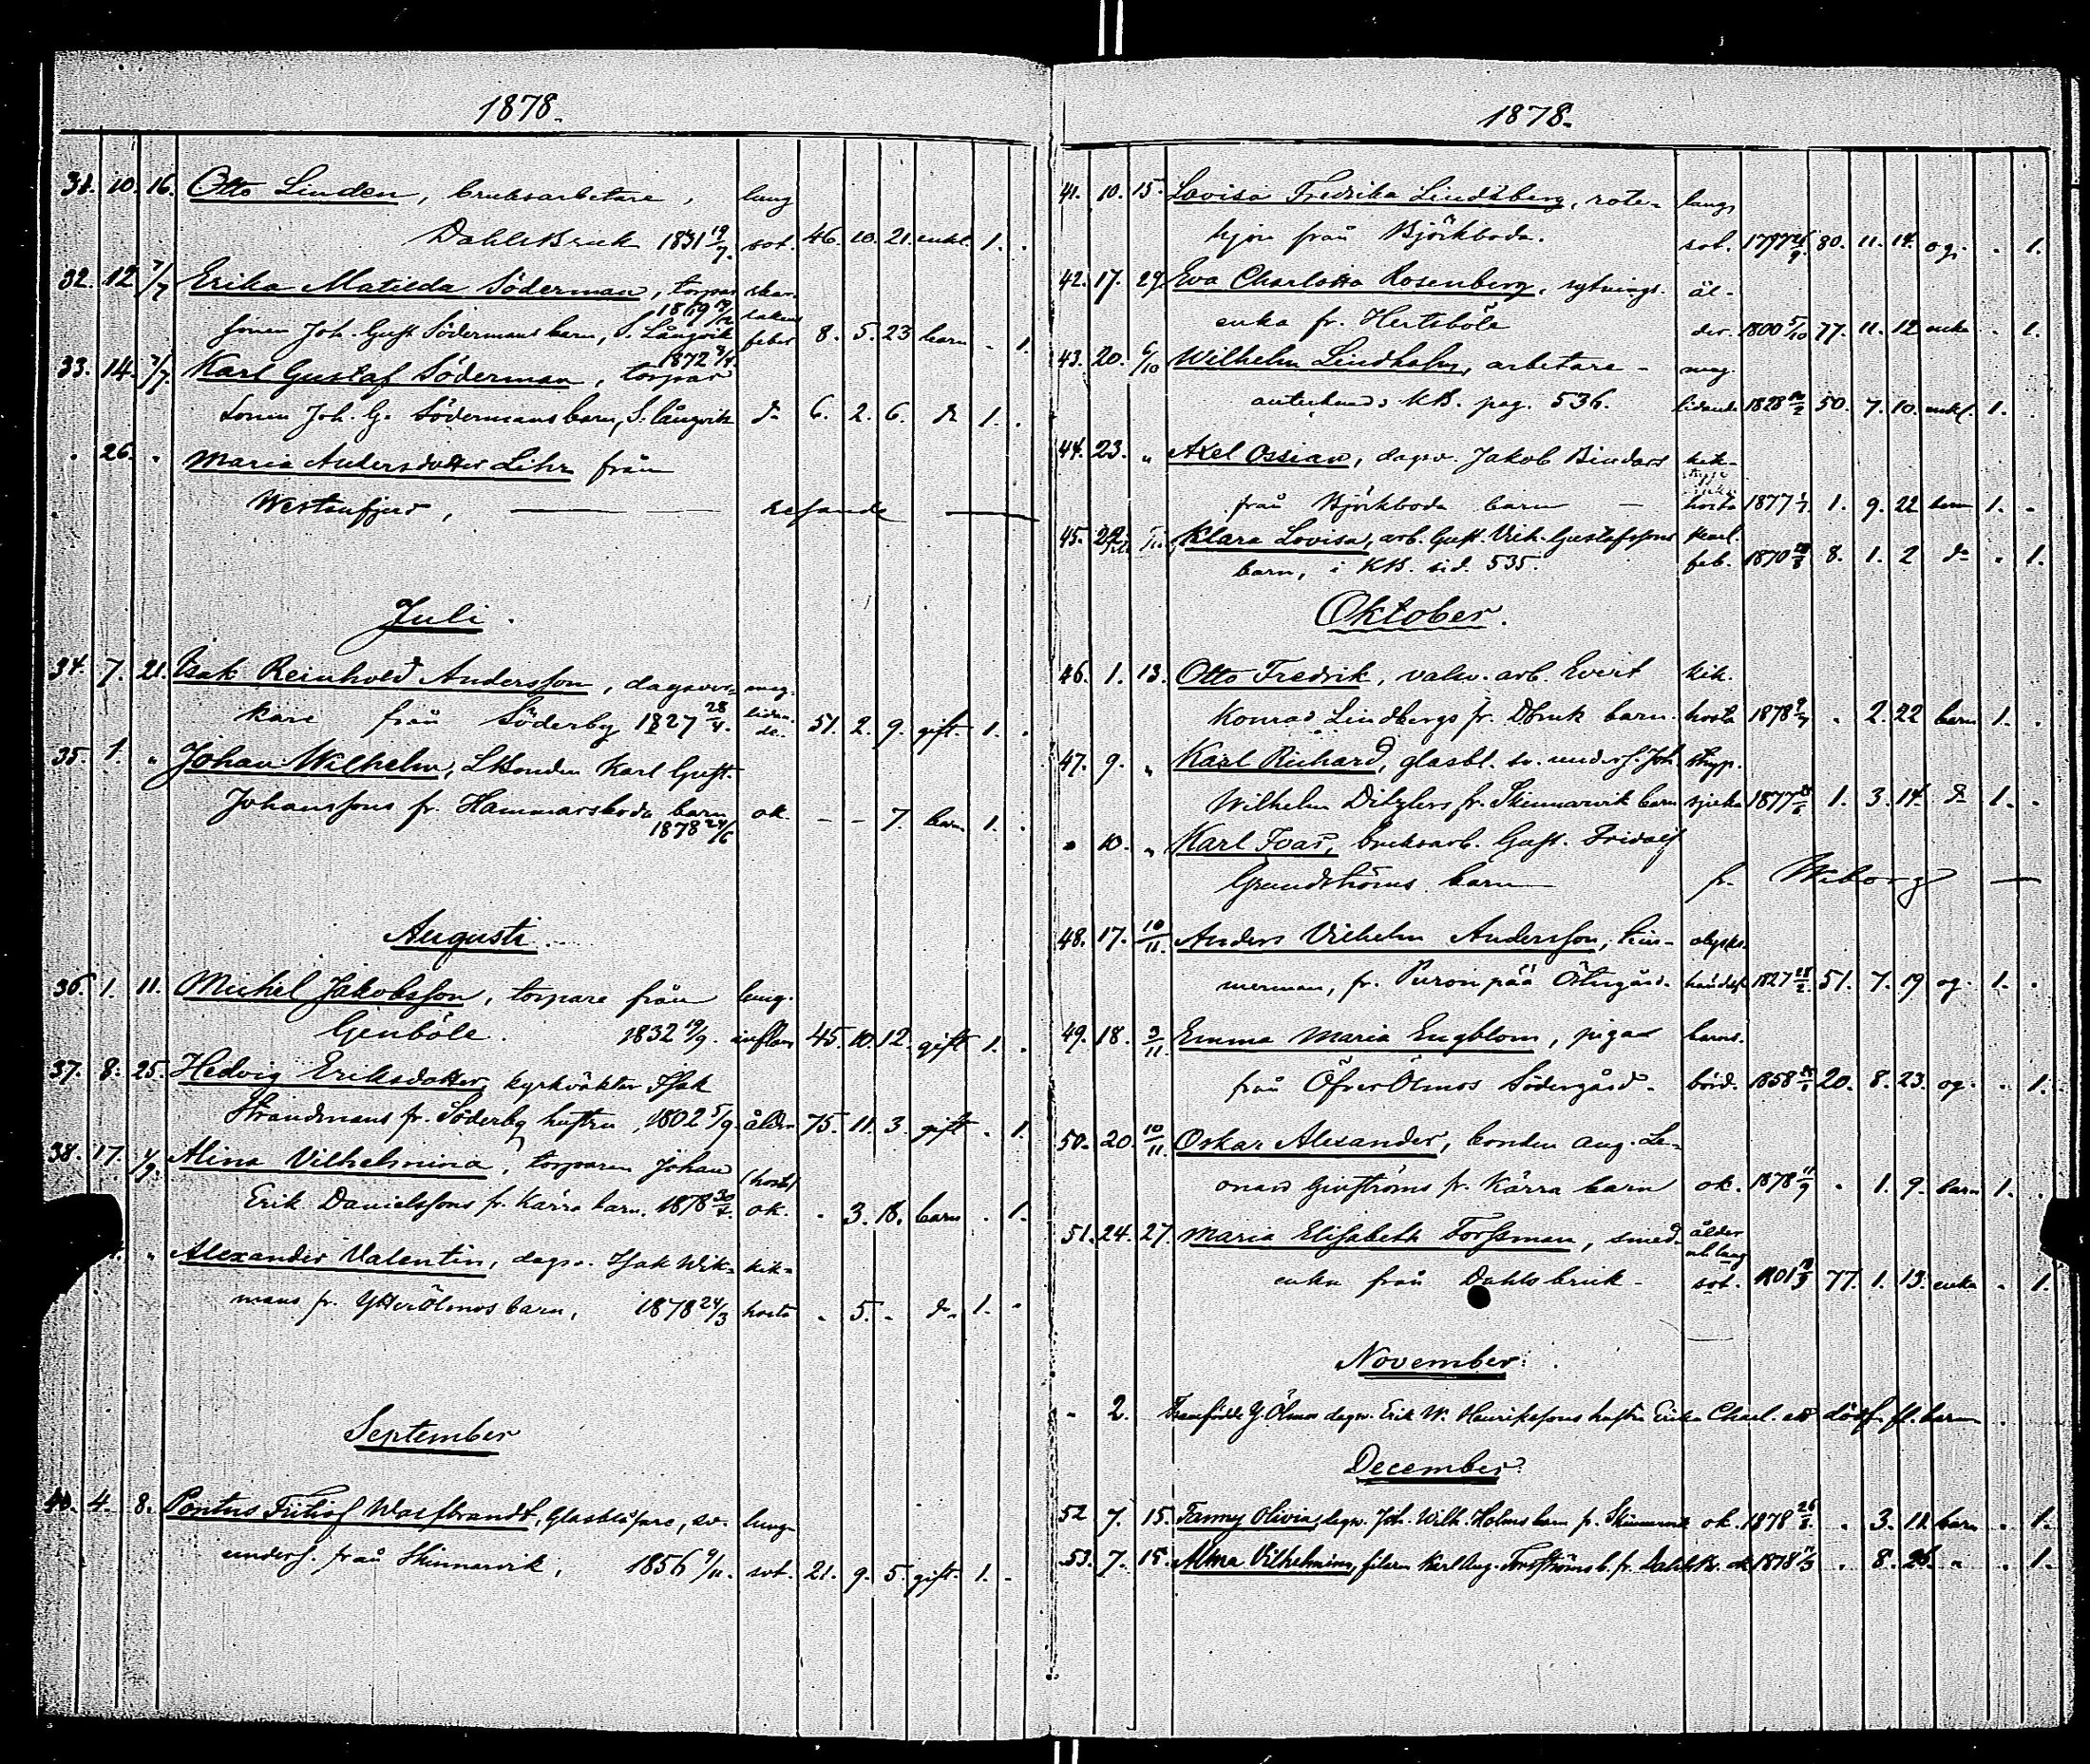 1878.
31. 10. 16. Otto Linden, bruksarbetare, lung
Dahlsbruk 1831 19/7. sot. 46. 10. 21. enkl. 1.
32. 12. 7/7 Erika Matilda Söderman, torpar skar-
1869 19/12 lakans
sonen Joh. Gust. Södermans barn, S. Långvik feber 8. 5. 23 barn - 1.
1872 8/4.
33. 14. 7/7. Karl Gustaf Söderman, torpar
sonen Joh. G. Södermans barn, S. Långvik do 6. 2. 6. do 1.
26. Maria Andersdotter Lihr från
Westanfjerd, — resande —
Juli.
34. 7. 21. Isak Reinhold Andersson, dagsver- mag.
kare från Söderby 1827 28/4. lidan-de. 51. 2. 9. gift. 1.
35. 1. " Johan Wilhelm, Karl Gust.
Johanssons fr. Hammarsboda barn ok. - - 7. barn 1.
1878 24/6
Augusti.
36. 1. 11. Michel Jakobsson, torpare från lung.
Genböle. 1832 19/9. inflam 45. 10. 12. gift 1.
37. 8. 25. Hedvig Eriksdotter, kyrkväktar Isak
Strandmans fr. Söderby hustru, 1802 5/9. ålder 75. 11. 3. gift. 1.
38. 17. 1/9. Alina Vilhelmina, torparen Johan (hosta)
Erik Danielssons fr. Kärra barn. 1878 30/4. ok. . 3. 18. barn . 1.
" Alexander Valentin, dagsv. Isak Wik- kik-
mans fr. YtterÖlmos barn, 1878 24/3 hosta . 5. - do. 1. -
September
40. 4. 8. Pontus Fritiof Wassbrandt, Glasblåsare, sv. lung-
unders. från Skinnarvik, 1856 9/11. sot. 21. 9. 5. gift. 1. -
1878.
41. 10. 15. Lovisa Fredrika Lindsberg, rote- lung
hjon från Björkboda. sot. 1797 26/9. 80. 11. 14. og. . 1.
42. 17. 29 Eva Charlotta Rosenberg, sytnings- ål-
enka fr. Hertsböle der. 1800 5/10 77. 11. 12 enka . 1.
43. 20. 6/10 Wilhelm Lindholm, arbetare - mag.
antecknad i KB. pag. 536. lidande 1828 50. 7. 10. enkl. 1.
44. 23. " Axel Ossian, dagsv. Jakob Bindars kik-
från Björkboda barn — hosta 1877 1/1. 1. 9. 22 barn 1. -
45. 22 Klara Lovisa, arb. Gust. Vilh. Gustafssons skarl.
barn, i KB. sid. 535. feb. 1870 8. 1. 2 do . 1.
Oktober.
46. 1. 13. Otto Fredrik, valsv. arb. Evert kik.
Konrad Lindbergs fr. Dbruk barn. hosta 1878 9/7 . 2. 22 barn 1. .
47. 9. " Karl Richard, glasbl. sv. unders. Joh. stryp.
Wilhelm Ditzlers fr. Skinnarvik barn sjuka 1877 1. 3. 14. do 1. .
10. " Karl Ivar, bruksarb. Gust. Fridolf
Grundströms barn fr. Wiborg —
48. 17. 10/11. Anders Vilhelm Andersson, tim- olycks-
merman, fr. Puronpää Östergård. händelse 1827 28/2. 51. 7. 19 og. 1. .
49. 18. 3/11. Emma Maria Engblom, piga barns-
från ÖfverÖlmos Södergård. börd. 1858 20. 8. 23. og. . 1.
50. 20. 10/11. Oskar Alexander, bonden Aug. Le-
onard Ginströms fr. Kärra barn ok. 1878 11/9 . 1. 9. barn 1. .
51. 24. 27. Maria Elisabeth Forssman, smed- ålder
och lung
enka från Dahlsbruk - sot. 1801 77. 1. 13. enka . 1.
November.
- 2. Framfödde Y. Ölmos dagsv. Erik W. Henrikssons hustru Erika Charl. ett dödf. fl. barn
December.
52 7. 15. Fanny Olivia, dagsv. Joh. Wilh. Holms barn fr. Skinnarvik ok. 1878 26/8. . 3. 11. barn . 1.
53. 7. 15. Alma Vilhelmina, filaren Karl Aug. Forsströms b. fr. Dahlsbr. ok 1878 11/3 . 8. 26. " . 1.